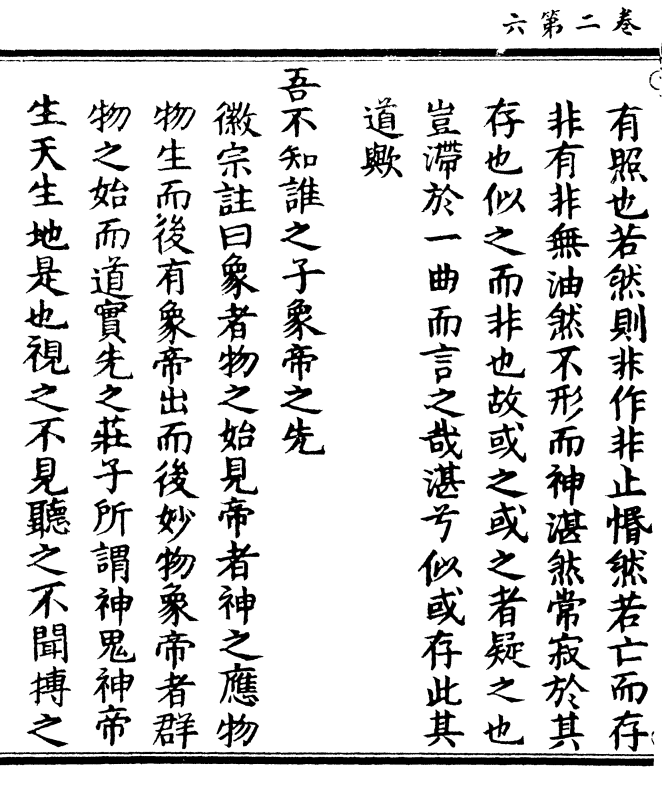 卷二第六
有照也若然則非作非止惛然若亡而存
非有非無油然不形而神湛然常寂於其
存也似之而非也故或之或之者疑之也
豈滯於一曲而言之哉湛兮似或存此其
道歟
吾不知誰之子象帝之先
徽宗註曰象者物之始見帝者神之應物
物生而後有象帝出而後妙物象帝者群
物之始而道實先之莊子所謂神鬼神帝
生天生地是也視之不見聽之不聞搏之